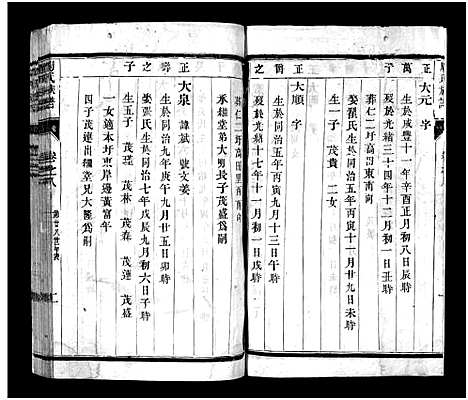 正 大元 字
萬 生於咸豐十一年辛酉正月初八日辰時
歿於光緒三十四年十二月初一日丑時
葬仁二圩高田東南向
娶翟氏生於同治五年丙寅十一月廿九日未時
生一子 茂貴 二女
正 大順 字
朝 生於同治五年丙寅十一月十三日午時
之 歿於光緒十一年十一月初一日戌時
葬仁二圩高田
承細堂弟大明長子茂盛為嗣
正 大泉 諱斌 號文姜
生於同治九年庚午九月廿五日卯時
之 娶張氏生於同治七年戊辰九月初六日子時
子 生五子 茂瑾 茂林 茂森 茂蓮 茂盛
一女適本圩惠岸邊黃富年
四子茂蓮出繼堂兄大隆為嗣
氏族譜
卷之八